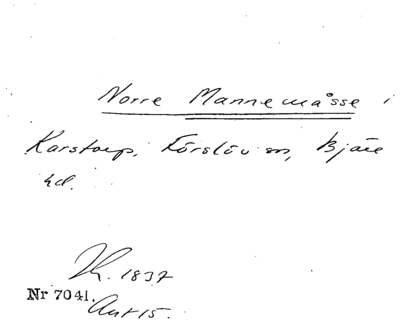 Norre Mannemåsse i
Karstorp, Förslöv sn, Bjäre
hd.
Th. 1837
Nr 7041.
Ant 15.